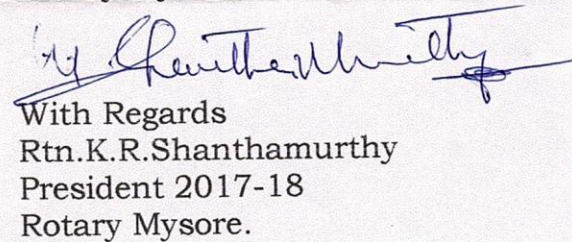 With Regards
Rtn.K.R.Shanthamurthy
President 2017-18
Rotary Mysore.